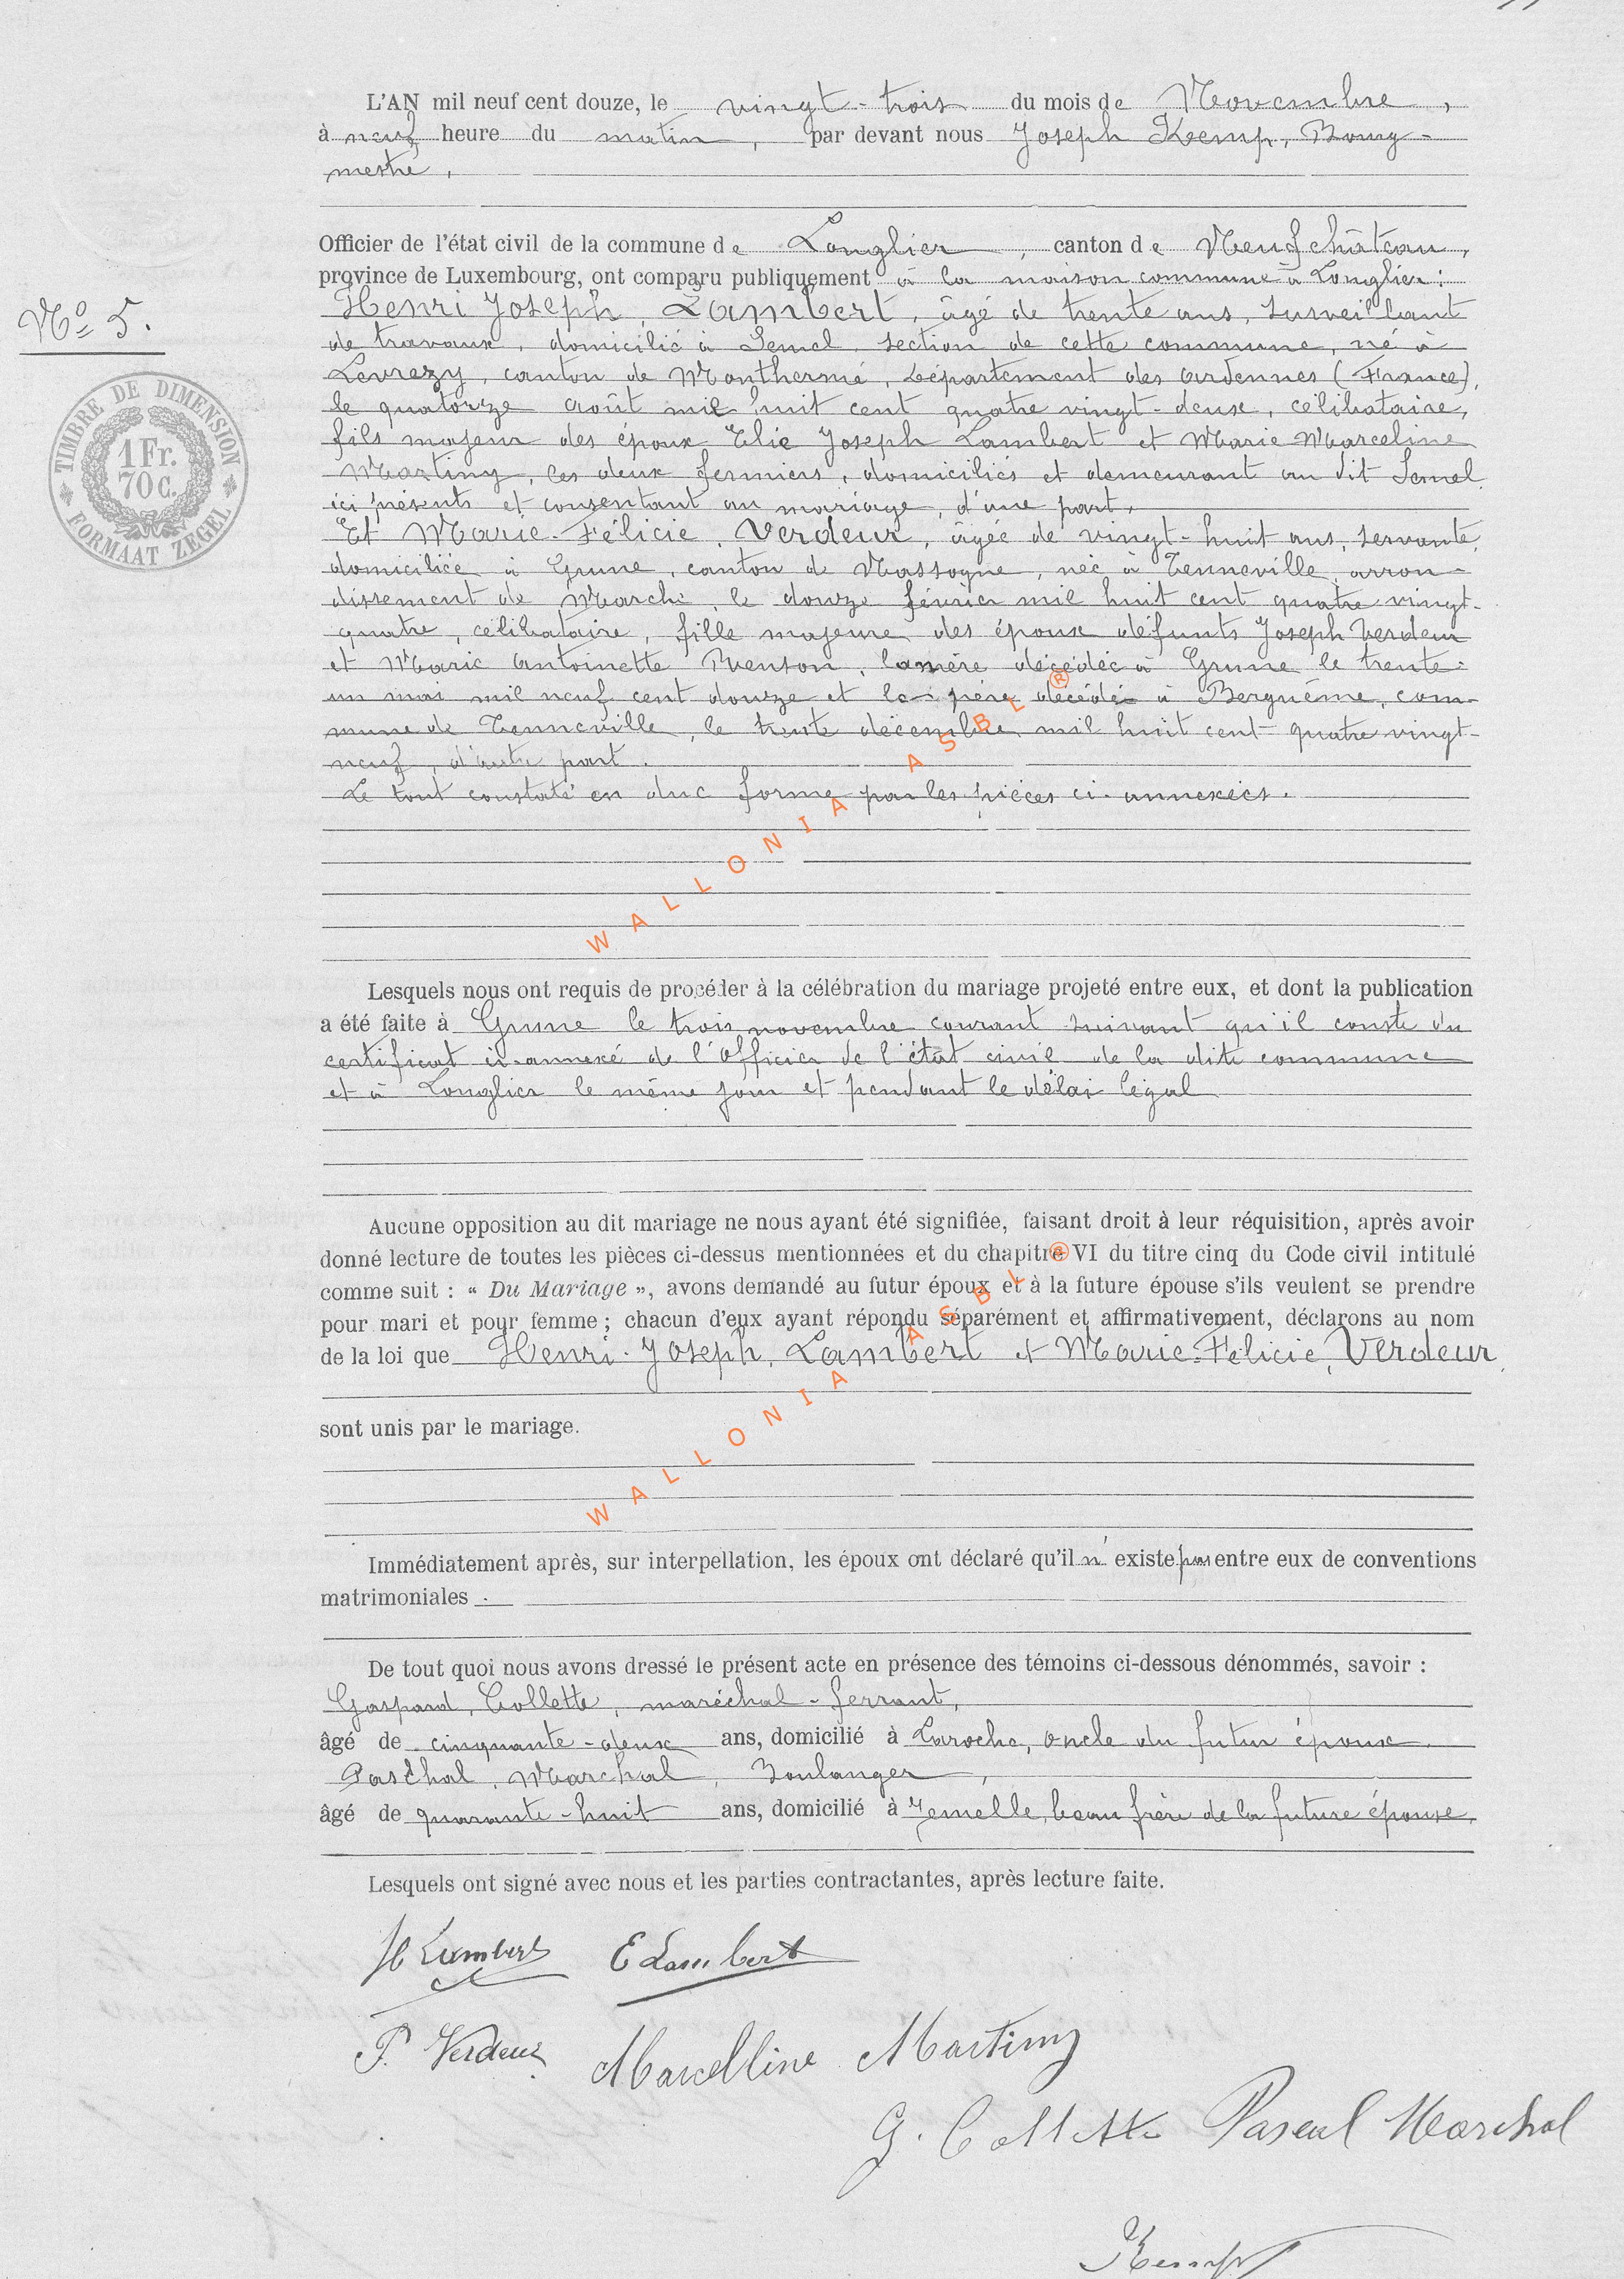 L'AN mil neuf cent douze, le vingt-trois du mois de Novembre,
à neuf heure du matin, par devant nous Joseph Kemp, Bourg-
mestre,
Officier de l'état civil de la commune de Longlier, canton de Neufchâteau,
province de Luxembourg, ont comparu publiquement à la maison commune à Longlier:
Nº 5.
Henri Joseph, Lambert, âgé de trente ans, surveillant
de travaux, domicilié à Semel, section de cette commune, né à
Levrezy, canton de Monthermé, département des Ardennes (France),
le quatorze août mil huit cent quatre vingt-deux, célibataire,
fils majeur des époux Elie Joseph Lambert et Marie Marceline
Martiny, les deux fermiers, domiciliés et demeurant au dit Semel
ici présents et consentant au mariage, d'une part,
Et Marie-Félicie, Verdeur, âgée de vingt-huit ans, servante,
domiciliée à Grune, canton de Nassogne, née à Tenneville, arron-
dissement de Marche, le douze février mil huit cent quatre vingt-
quatre, célibataire, fille majeure des époux défunts Joseph Verdeur
et Marie Antoinette, la mère décédée à Grune le trente-
un mai mil neuf cent douze et le père décédé à Berguême, com-
mune de Tenneville, le trente décembre mil huit cent quatre vingt-
neuf, d'autre part.
Le tout constaté en due forme par les pièces ci-annexées.
TIMBRE DE DIMENSION
1 Fr.
70 C.
FORMAAT ZEGEL
WALLONIA ASBL ®
Lesquels nous ont requis de procéder à la célébration du mariage projeté entre eux, et dont la publication
a été faite à Grune le trois novembre courant suivant qu'il conste du
certificat ci-annexé de l'Officier de l'état civil de la dite commune
et à Longlier le même jour et pendant le délai légal
Aucune opposition au dit mariage ne nous ayant été signifiée, faisant droit à leur réquisition, après avoir
donné lecture de toutes les pièces ci-dessus mentionnées et du chapitre VI du titre cinq du Code civil intitulé
comme suit : « Du Mariage », avons demandé au futur époux et à la future épouse s'ils veulent se prendre
pour mari et pour femme ; chacun d'eux ayant répondu séparément et affirmativement, déclarons au nom
de la loi que Henri-Joseph, Lambert et Marie-Félicie, Verdeur,
sont unis par le mariage.
WALLONIA ASBL ®
Immédiatement après, sur interpellation, les époux ont déclaré qu'il n'existe pas entre eux de conventions
matrimoniales.
De tout quoi nous avons dressé le présent acte en présence des témoins ci-dessous dénommés, savoir :
Gaspard, Collette, maréchal-ferrant,
âgé de cinquante-deux ans, domicilié à Laroche, oncle du futur époux.
Paschal, Marchal, Boulanger,
âgé de quarante-huit ans, domicilié à Jemelle, beau frère de la future épouse.
Lesquels ont signé avec nous et les parties contractantes, après lecture faite.
H Lambert E Lambert
F. Verdeur Marcelline Martiny
G. Collette Pascal Marchal
Kemp